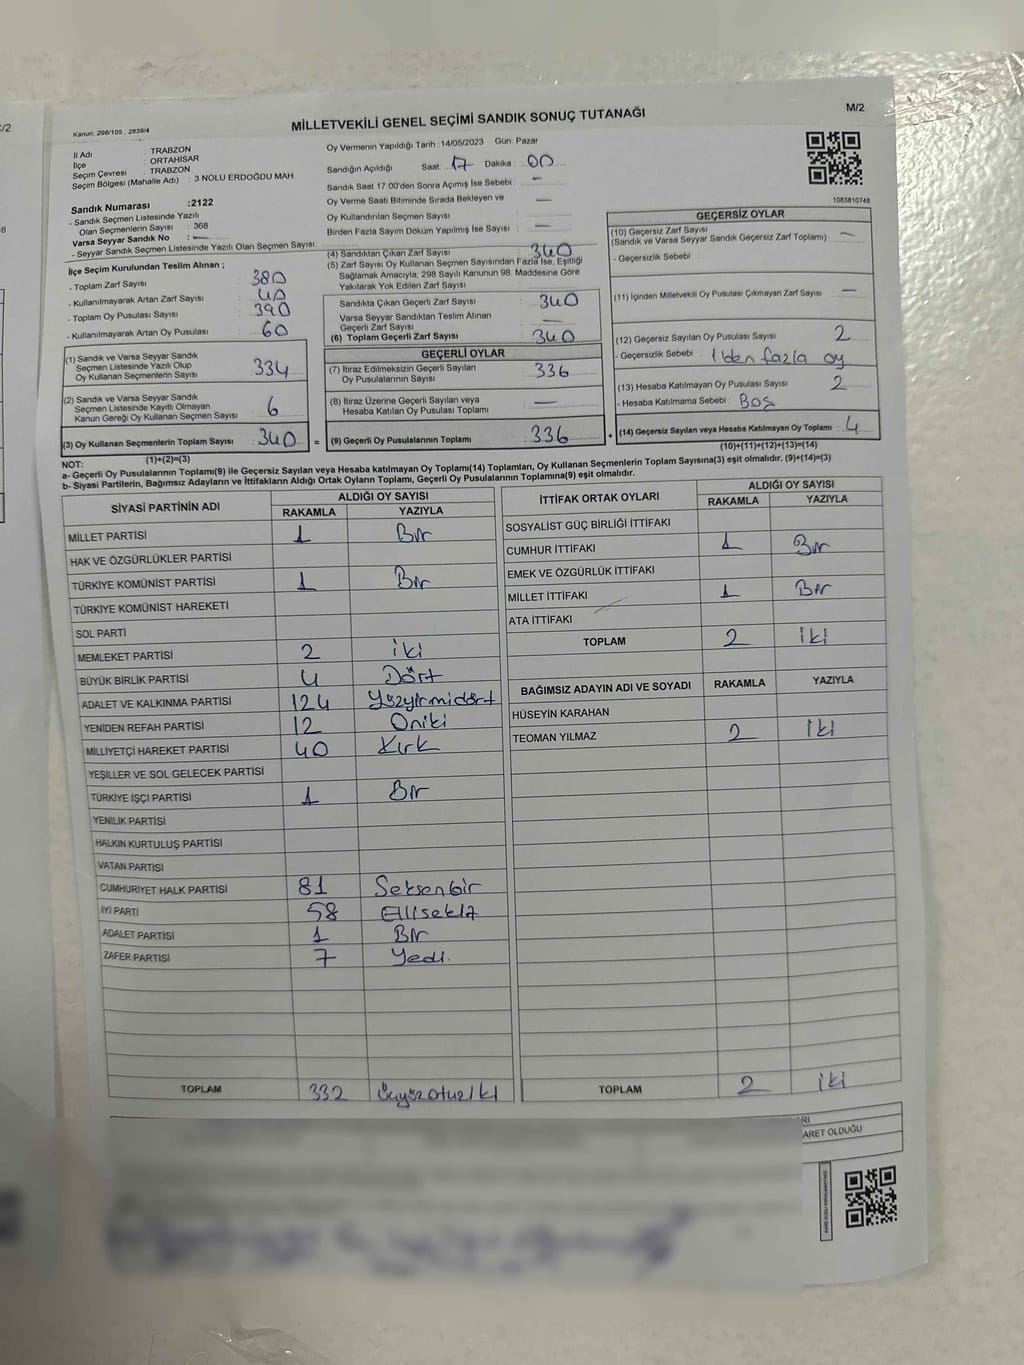 MİLLETVEKİLİ GENEL SEÇİMİ SANDIK SONUÇ TUTANAĞI
M/2
Kanun: 298/105 , 2839/4
İl Adı : TRABZON
İlçe : ORTAHİSAR
Seçim Çevresi : TRABZON
Seçim Bölgesi (Mahalle Adı) : 3 NOLU ERDOĞDU MAH.
Sandık Numarası :2122
- Sandık Seçmen Listesinde Yazılı
Olan Seçmenlerin Sayısı : 368
Varsa Seyyar Sandık No : —
- Seyyar Sandık Seçmen Listesinde Yazılı Olan Seçmen Sayısı
Oy Vermenin Yapıldığı Tarih : 14/05/2023 Gün: Pazar
Sandığın Açıldığı Saat 17 Dakika : 00
Sandık Saat 17.00'den Sonra Açımış İse Sebebi : —
Oy Verme Saati Bitiminde Sırada Bekleyen ve —
Oy Kullandırılan Seçmen Sayısı
Birden Fazla Sayım Döküm Yapılmış İse Sayısı : —
1083810748
İlçe Seçim Kurulundan Teslim Alınan ;
- Toplam Zarf Sayısı : 380
- Kullanılmayarak Artan Zarf Sayısı : 40
- Toplam Oy Pusulası Sayısı : 390
- Kullanılmayarak Artan Oy Pusulası : 60
(1) Sandık ve Varsa Seyyar Sandık
Seçmen Listesinde Yazılı Olup
Oy Kullanan Seçmenlerin Sayısı : 334
(2) Sandık ve Varsa Seyyar Sandık
Seçmen Listesinde Kayıtlı Olmayan
Kanun Gereği Oy Kullanan Seçmen Sayısı : 6
(3) Oy Kullanan Seçmenlerin Toplam Sayısı : 340 =
(1)+(2)=(3)
(4) Sandıktan Çıkan Zarf Sayısı : 340
(5) Zarf Sayısı Oy Kullanan Seçmen Sayısından Fazla İse, Eşitliği
Sağlamak Amacıyla, 298 Sayılı Kanunun 98. Maddesine Göre
Yakılarak Yok Edilen Zarf Sayısı
Sandıkta Çıkan Geçerli Zarf Sayısı : 340
Varsa Seyyar Sandıktan Teslim Alınan
Geçerli Zarf Sayısı : —
(6) Toplam Geçerli Zarf Sayısı : 340
GEÇERLİ OYLAR
(7) İtiraz Edilmeksizin Geçerli Sayılan
Oy Pusulalarının Sayısı : 336
(8) İtiraz Üzerine Geçerli Sayılan veya
Hesaba Katılan Oy Pusulası Toplamı : —
(9) Geçerli Oy Pusulalarının Toplamı : 336 +
GEÇERSİZ OYLAR
(10) Geçersiz Zarf Sayısı
(Sandık ve Varsa Seyyar Sandık Geçersiz Zarf Toplamı) : —
- Geçersizlik Sebebi :
(11) İçinden Milletvekili Oy Pusulası Çıkmayan Zarf Sayısı : —
(12) Geçersiz Sayılan Oy Pusulası Sayısı : 2
- Geçersizlik Sebebi : 1'den fazla oy
(13) Hesaba Katılmayan Oy Pusulası Sayısı : 2
- Hesaba Katılmama Sebebi : Boş
(14) Geçersiz Sayılan veya Hesaba Katılmayan Oy Toplamı : 4
(10)+(11)+(12)+(13)=(14)
NOT:
a- Geçerli Oy Pusulalarının Toplamı(9) ile Geçersiz Sayılan veya Hesaba katılmayan Oy Toplamı(14) Toplamları, Oy Kullanan Seçmenlerin Toplam Sayısına(3) eşit olmalıdır. (9)+(14)=(3)
b- Siyasi Partilerin, Bağımsız Adayların ve İttifakların Aldığı Ortak Oyların Toplamı, Geçerli Oy Pusulalarının Toplamına(9) eşit olmalıdır.
SİYASİ PARTİNİN ADI ALDIĞI OY SAYISI
RAKAMLA YAZIYLA
MİLLET PARTİSİ 1 Bir
HAK VE ÖZGÜRLÜKLER PARTİSİ
TÜRKİYE KOMÜNİST PARTİSİ 1 Bir
TÜRKİYE KOMÜNİST HAREKETİ
SOL PARTİ
MEMLEKET PARTİSİ 2 iki
BÜYÜK BİRLİK PARTİSİ 4 Dört
ADALET VE KALKINMA PARTİSİ 124 Yüzyirmidört
YENİDEN REFAH PARTİSİ 12 Oniki
MİLLİYETÇİ HAREKET PARTİSİ 40 Kırk
YEŞİLLER VE SOL GELECEK PARTİSİ
TÜRKİYE İŞÇİ PARTİSİ 1 Bir
YENİLİK PARTİSİ
HALKIN KURTULUŞ PARTİSİ
VATAN PARTİSİ
CUMHURİYET HALK PARTİSİ 81 Seksenbir
İYİ PARTİ 58 Ellisekiz
ADALET PARTİSİ 1 Bir
ZAFER PARTİSİ 7 Yedi.
TOPLAM 332 Üçyüzotuziki
İTTİFAK ORTAK OYLARI ALDIĞI OY SAYISI
RAKAMLA YAZIYLA
SOSYALİST GÜÇ BİRLİĞİ İTTİFAKI
CUMHUR İTTİFAKI 1 Bir
EMEK VE ÖZGÜRLÜK İTTİFAKI
MİLLET İTTİFAKI 1 Bir
ATA İTTİFAKI
TOPLAM 2 iki
BAĞIMSIZ ADAYIN ADI VE SOYADI RAKAMLA YAZIYLA
HÜSEYİN KARAHAN
TEOMAN YILMAZ 2 iki
TOPLAM 2 iki
ARET OLDUĞU